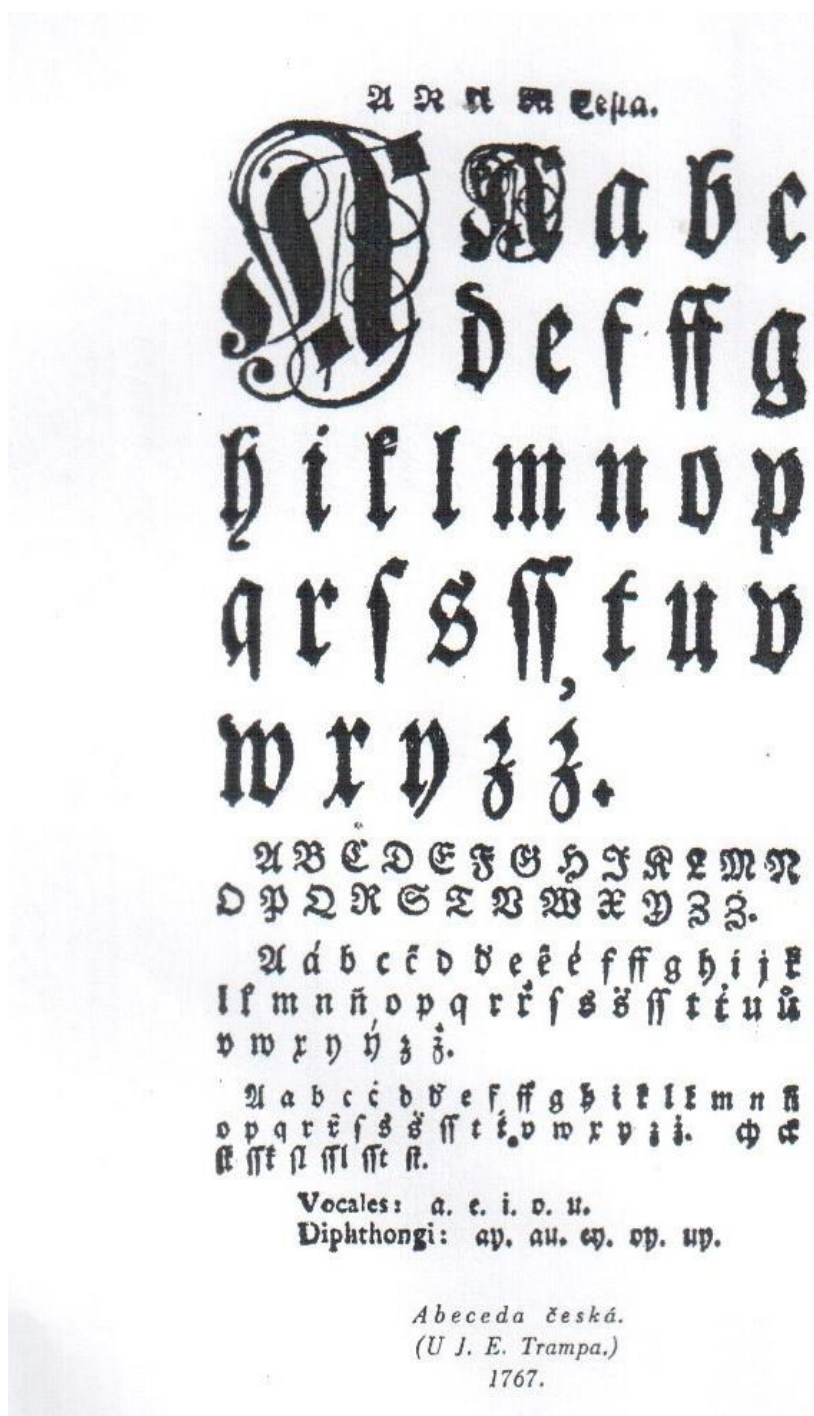 A a b c
d e f ff g
h i k l m n o p
q r ſ s ſſ, t u v
w x y z ż.
A B C D E F G H I K L M N
O P Q R S T V W X Y Z Ż.
A á b c č d ď e ě é f ff g h i j k
l ľ m n ň o p q r ř ſ s š ſſ t ť u ů
v w x y ý z ż.
A a b c ċ d ď e f ff g h i k l ľ m n ň
o p q r ř ſ s š ſſ t ť v w x y z ż. ch ck
ſk ſſk ſl ſſl ſſt ſt.
Vocales: a. e. i. o. u.
Diphthongi: ay. au. ey. oy. uy.
Abeceda česká.
(U J. E. Trampa.)
1767.